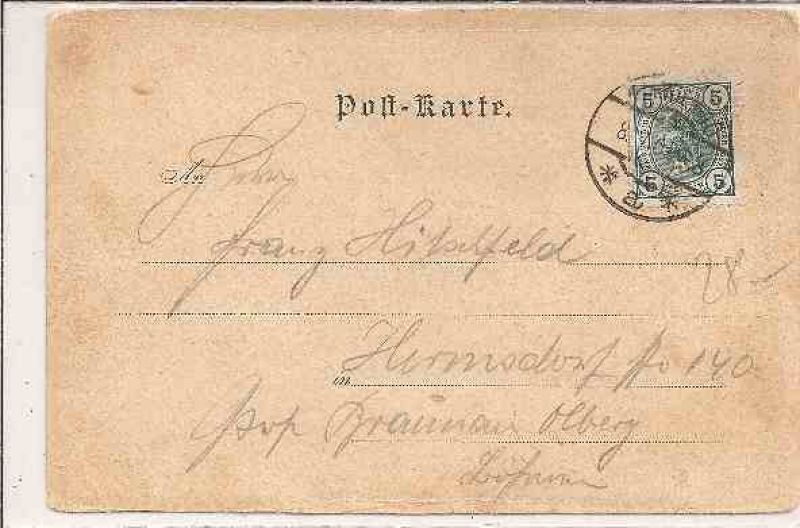 Post-Karte.
5 5
5 5
An Herrn
Franz Hitschfeld
in Hermsdorf No 140
Post Braunau Ölberg
Böhmen